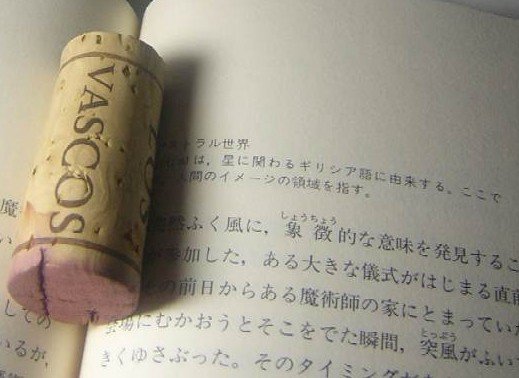 VASCOS
ストラル世界
は、星に関わるギリシア語に由来する。ここで
人間のイメージの領域を指す。
然ふく風に、象徴的な意味を発見するこ
しょうちょう
参加した、ある大きな儀式がはじまる直前
の前日からある魔術師の家にとまってい
にむかおうとそこをでた瞬間、突風がふい
とっぷう
きくゆさぶった。そのタイミング
魔
い
しての
いるが、